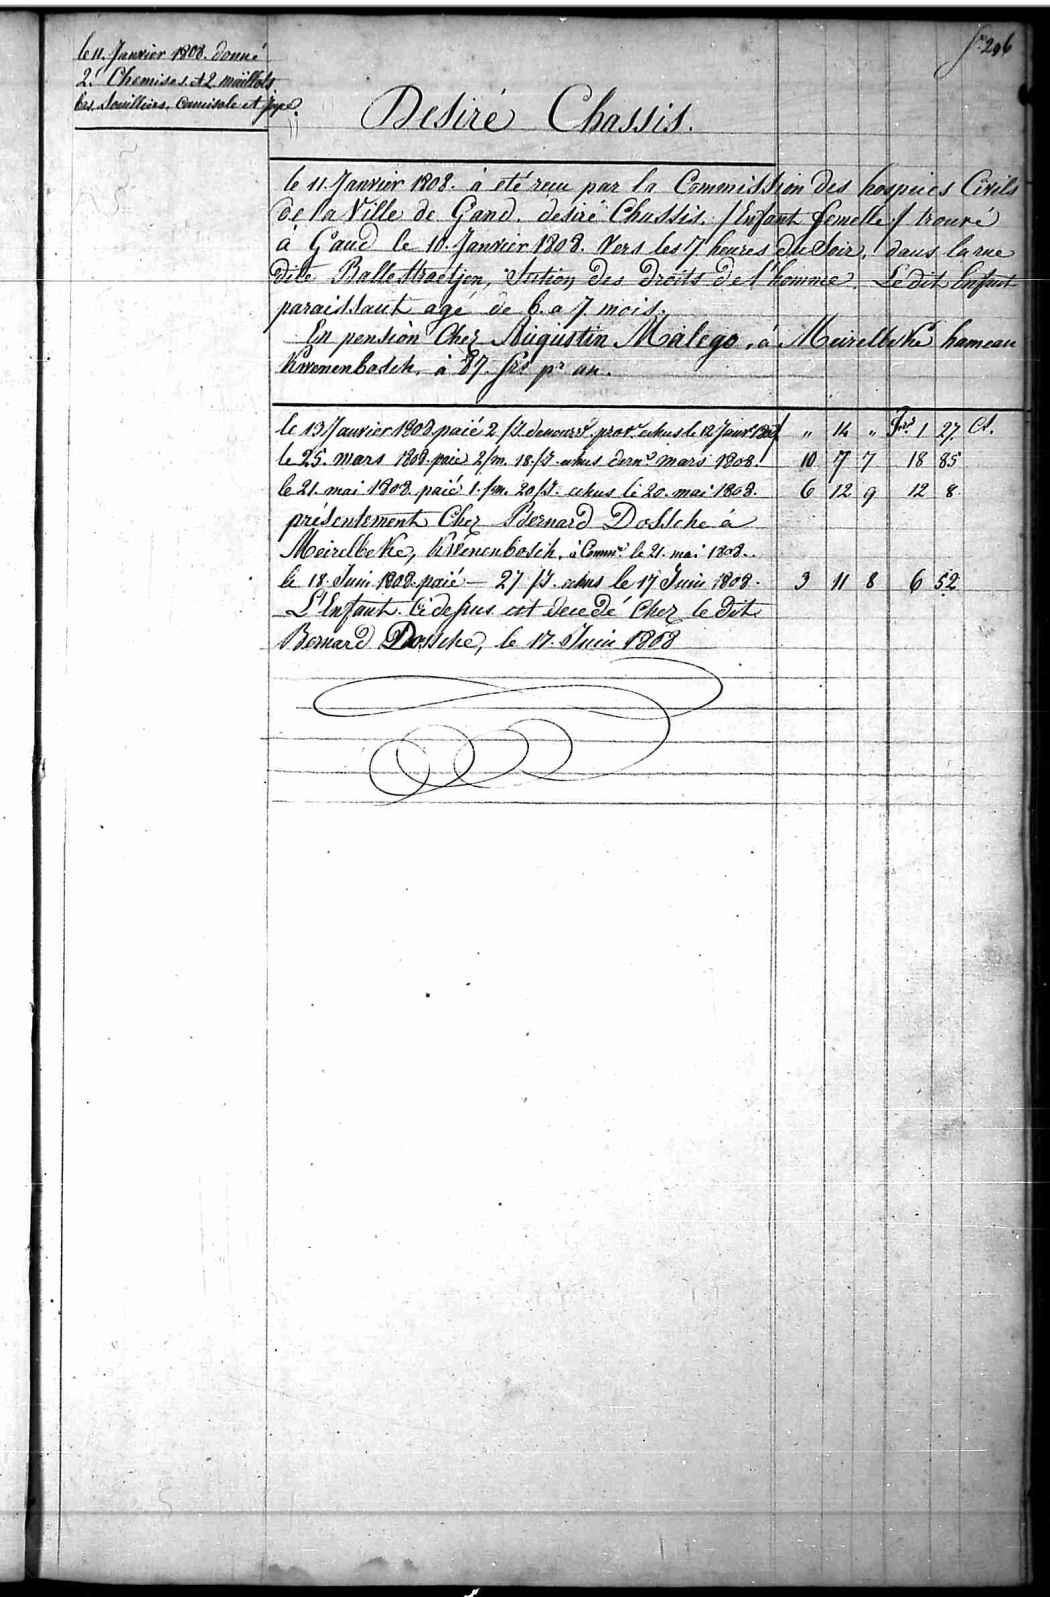 fo 206
le 11. Janvier 1808. donné
2. Chemises. et 2 maillots
bas. souilliers. Camisole et jupe.
Desiré Chassis.
le 11. Janvier 1808. à eté recu par la Commission des hospices Civils
de la Ville de Gand. desiré Chassis. /Enfant femelle/ trouvé
à Gand le 10. Janvier 1808. Vers les 7 heures du Soir, dans la rue
dite Ballestraetjen, Section des Droits de l'homme. Le dit Enfant
paraissant agé de 6. a 7 mois.
En pension Chez Augustin Malego, à Meirelbeke hameau
Kwenenbosch, à 87. frs pr an.
le 13 Janvier 1808 paié 2 /J. de nourre. prove. echus le 12 Janvr. 1808/ " 14 " Frs. 1 27. Ct.
le 25. mars 1808. paié 2/m. 18./J. echus derne. mars 1808. 10 7 7 18 85
le 21. mai 1808. paié 1./m. 20/J. echus le 20. mai 1808. 6 12 9 12 8
présentement Chez Bernard Dossche à
Meirelbeke, Kwenenbosch, à Comme. le 21. mai 1808.
le 18. Juin 1808. paié — 27 /J. echus le 17 Juin 1808. 3 11 8 6 52
L'Enfant. Ci dessus est decedé Chez le dit
Bernard Dossche, le 17. Juin 1808